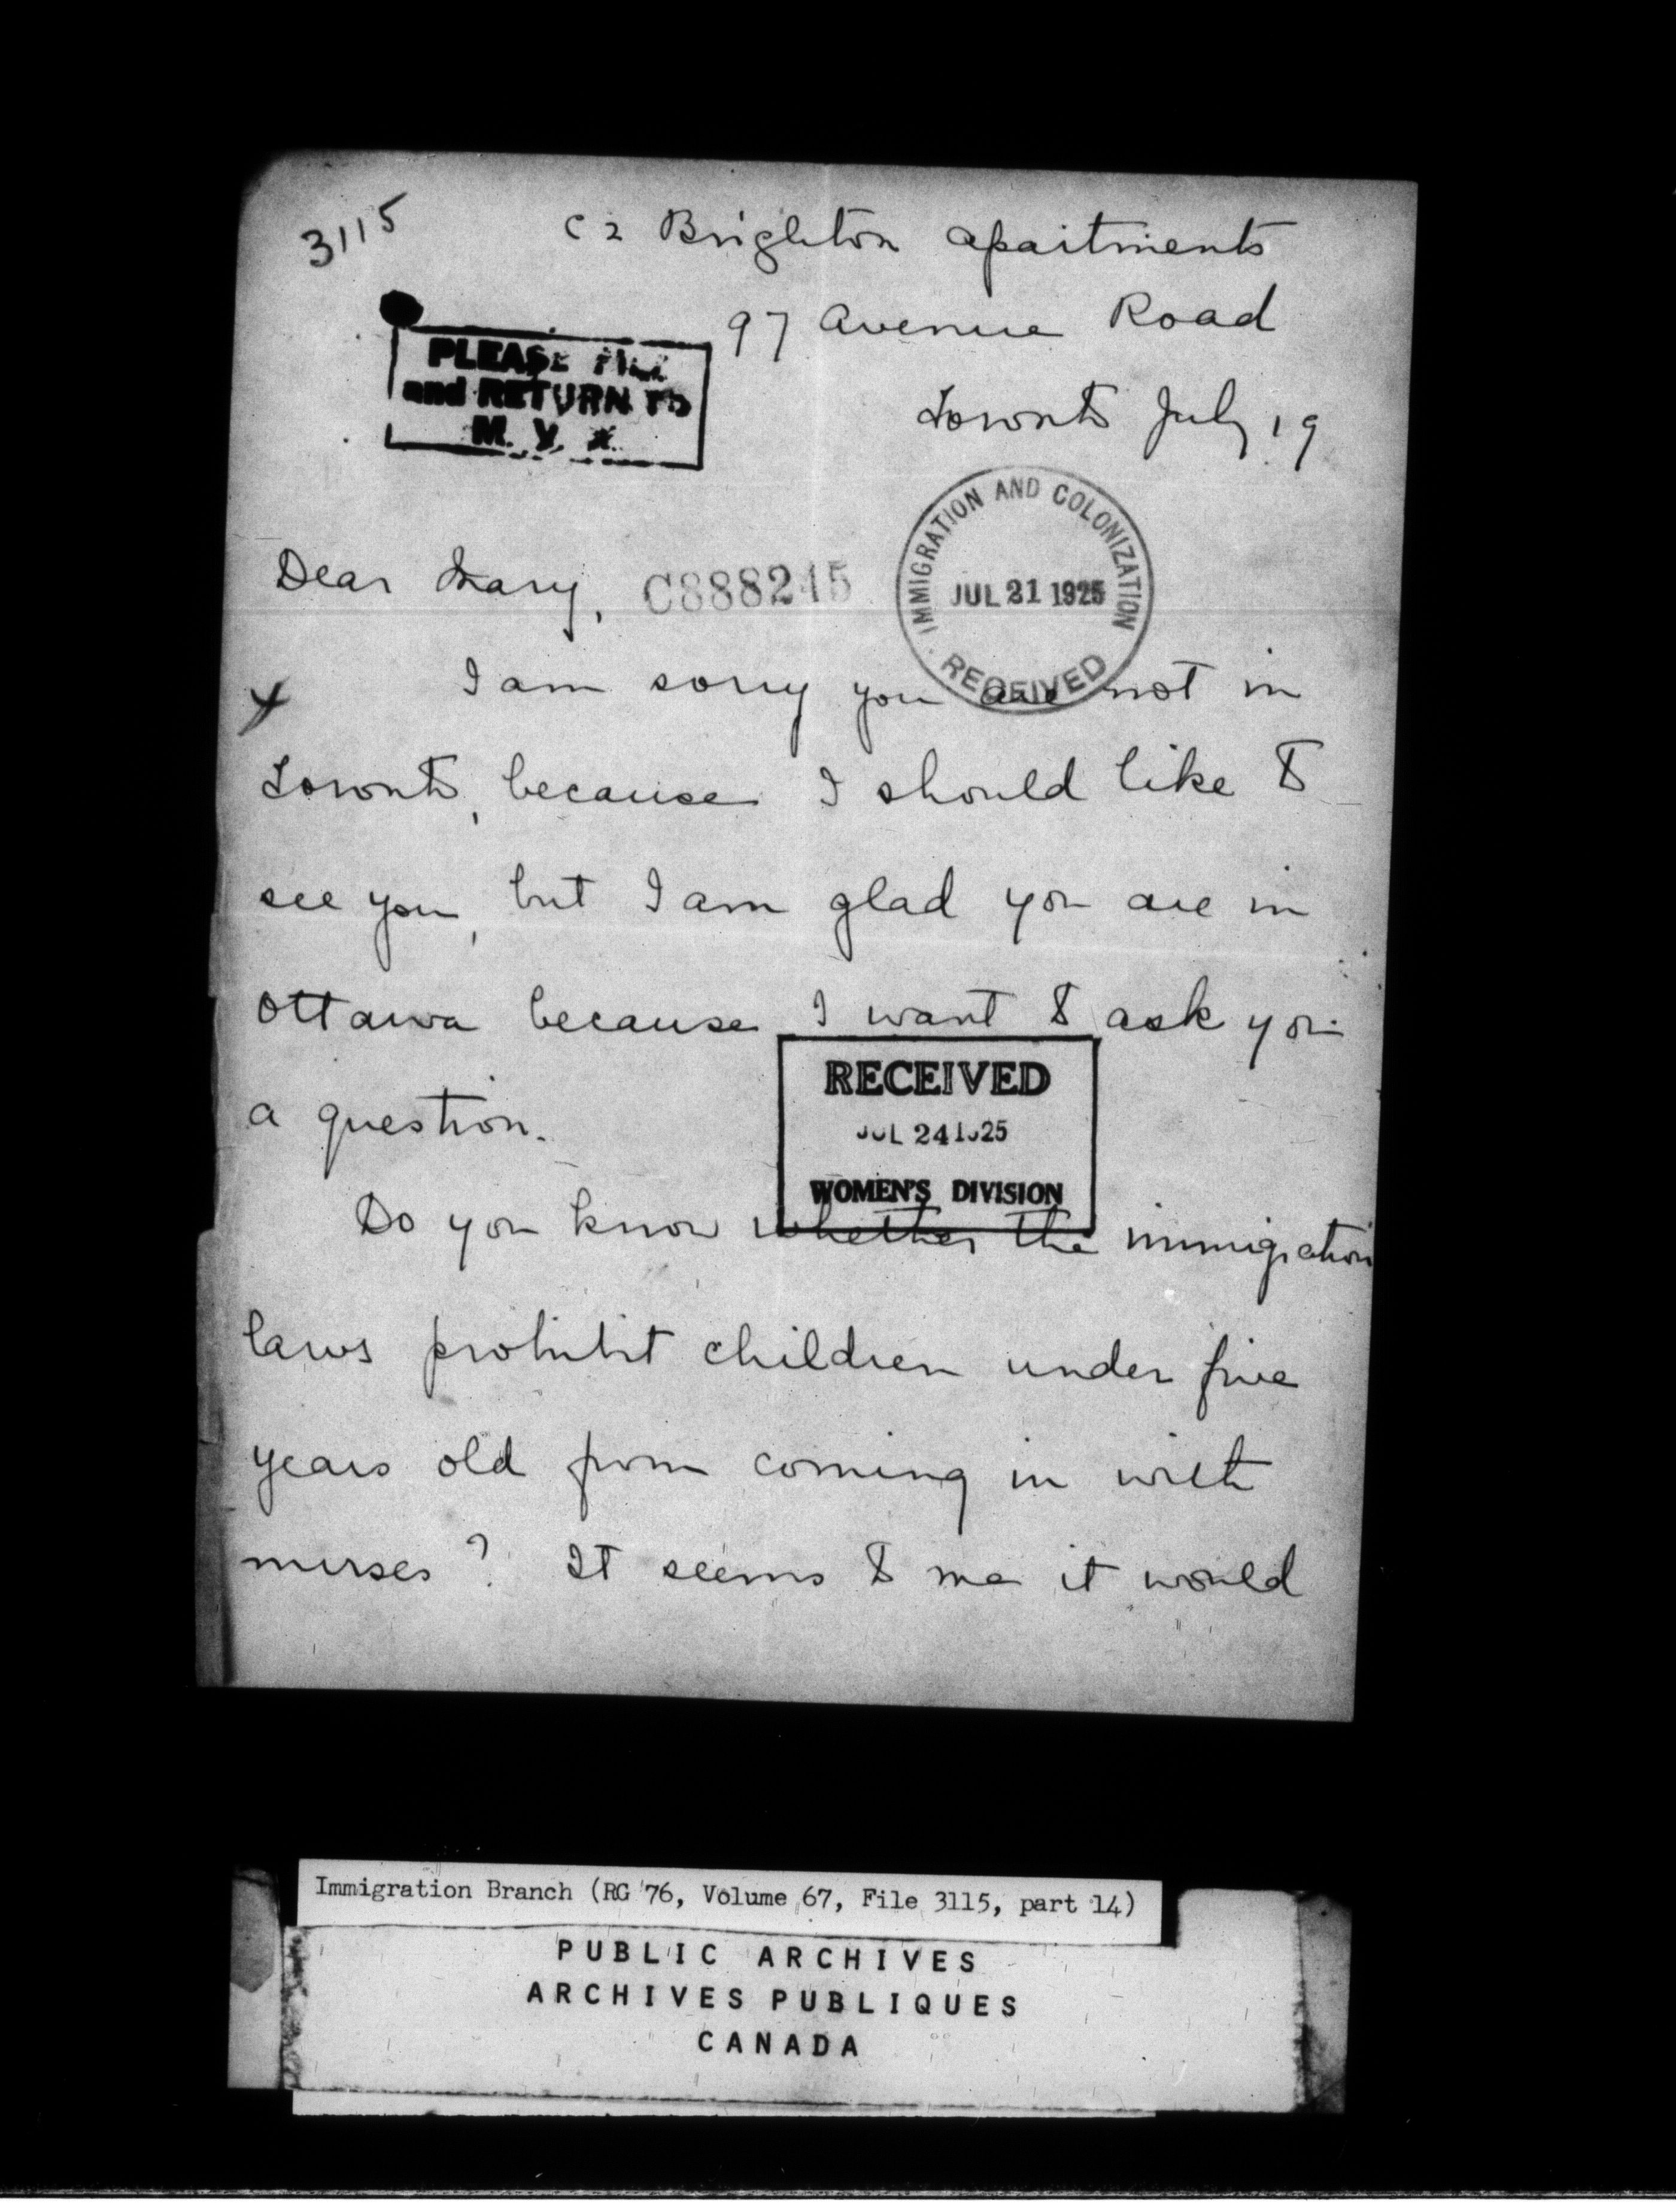 3115
C2 Brighton Apartments
97 Avenue Road
Toronto July 19
PLEASE FILL
and RETURN TO
M. V.
IMMIGRATION AND COLONIZATION
JUL 21 1925
RECEIVED
Dear Mary,
C888245
I am sorry you are not in
Toronto, because I should like to
see you, but I am glad you are in
Ottawa because I want to ask you
a question.
RECEIVED
JUL 24 1925
WOMEN'S DIVISION
Do you know whether the immigration
laws prohibit children under five
years old from coming in with
nurses? It seems to me it would
Immigration Branch (RG 76, Volume 67, File 3115, part 14)
PUBLIC ARCHIVES
ARCHIVES PUBLIQUES
CANADA